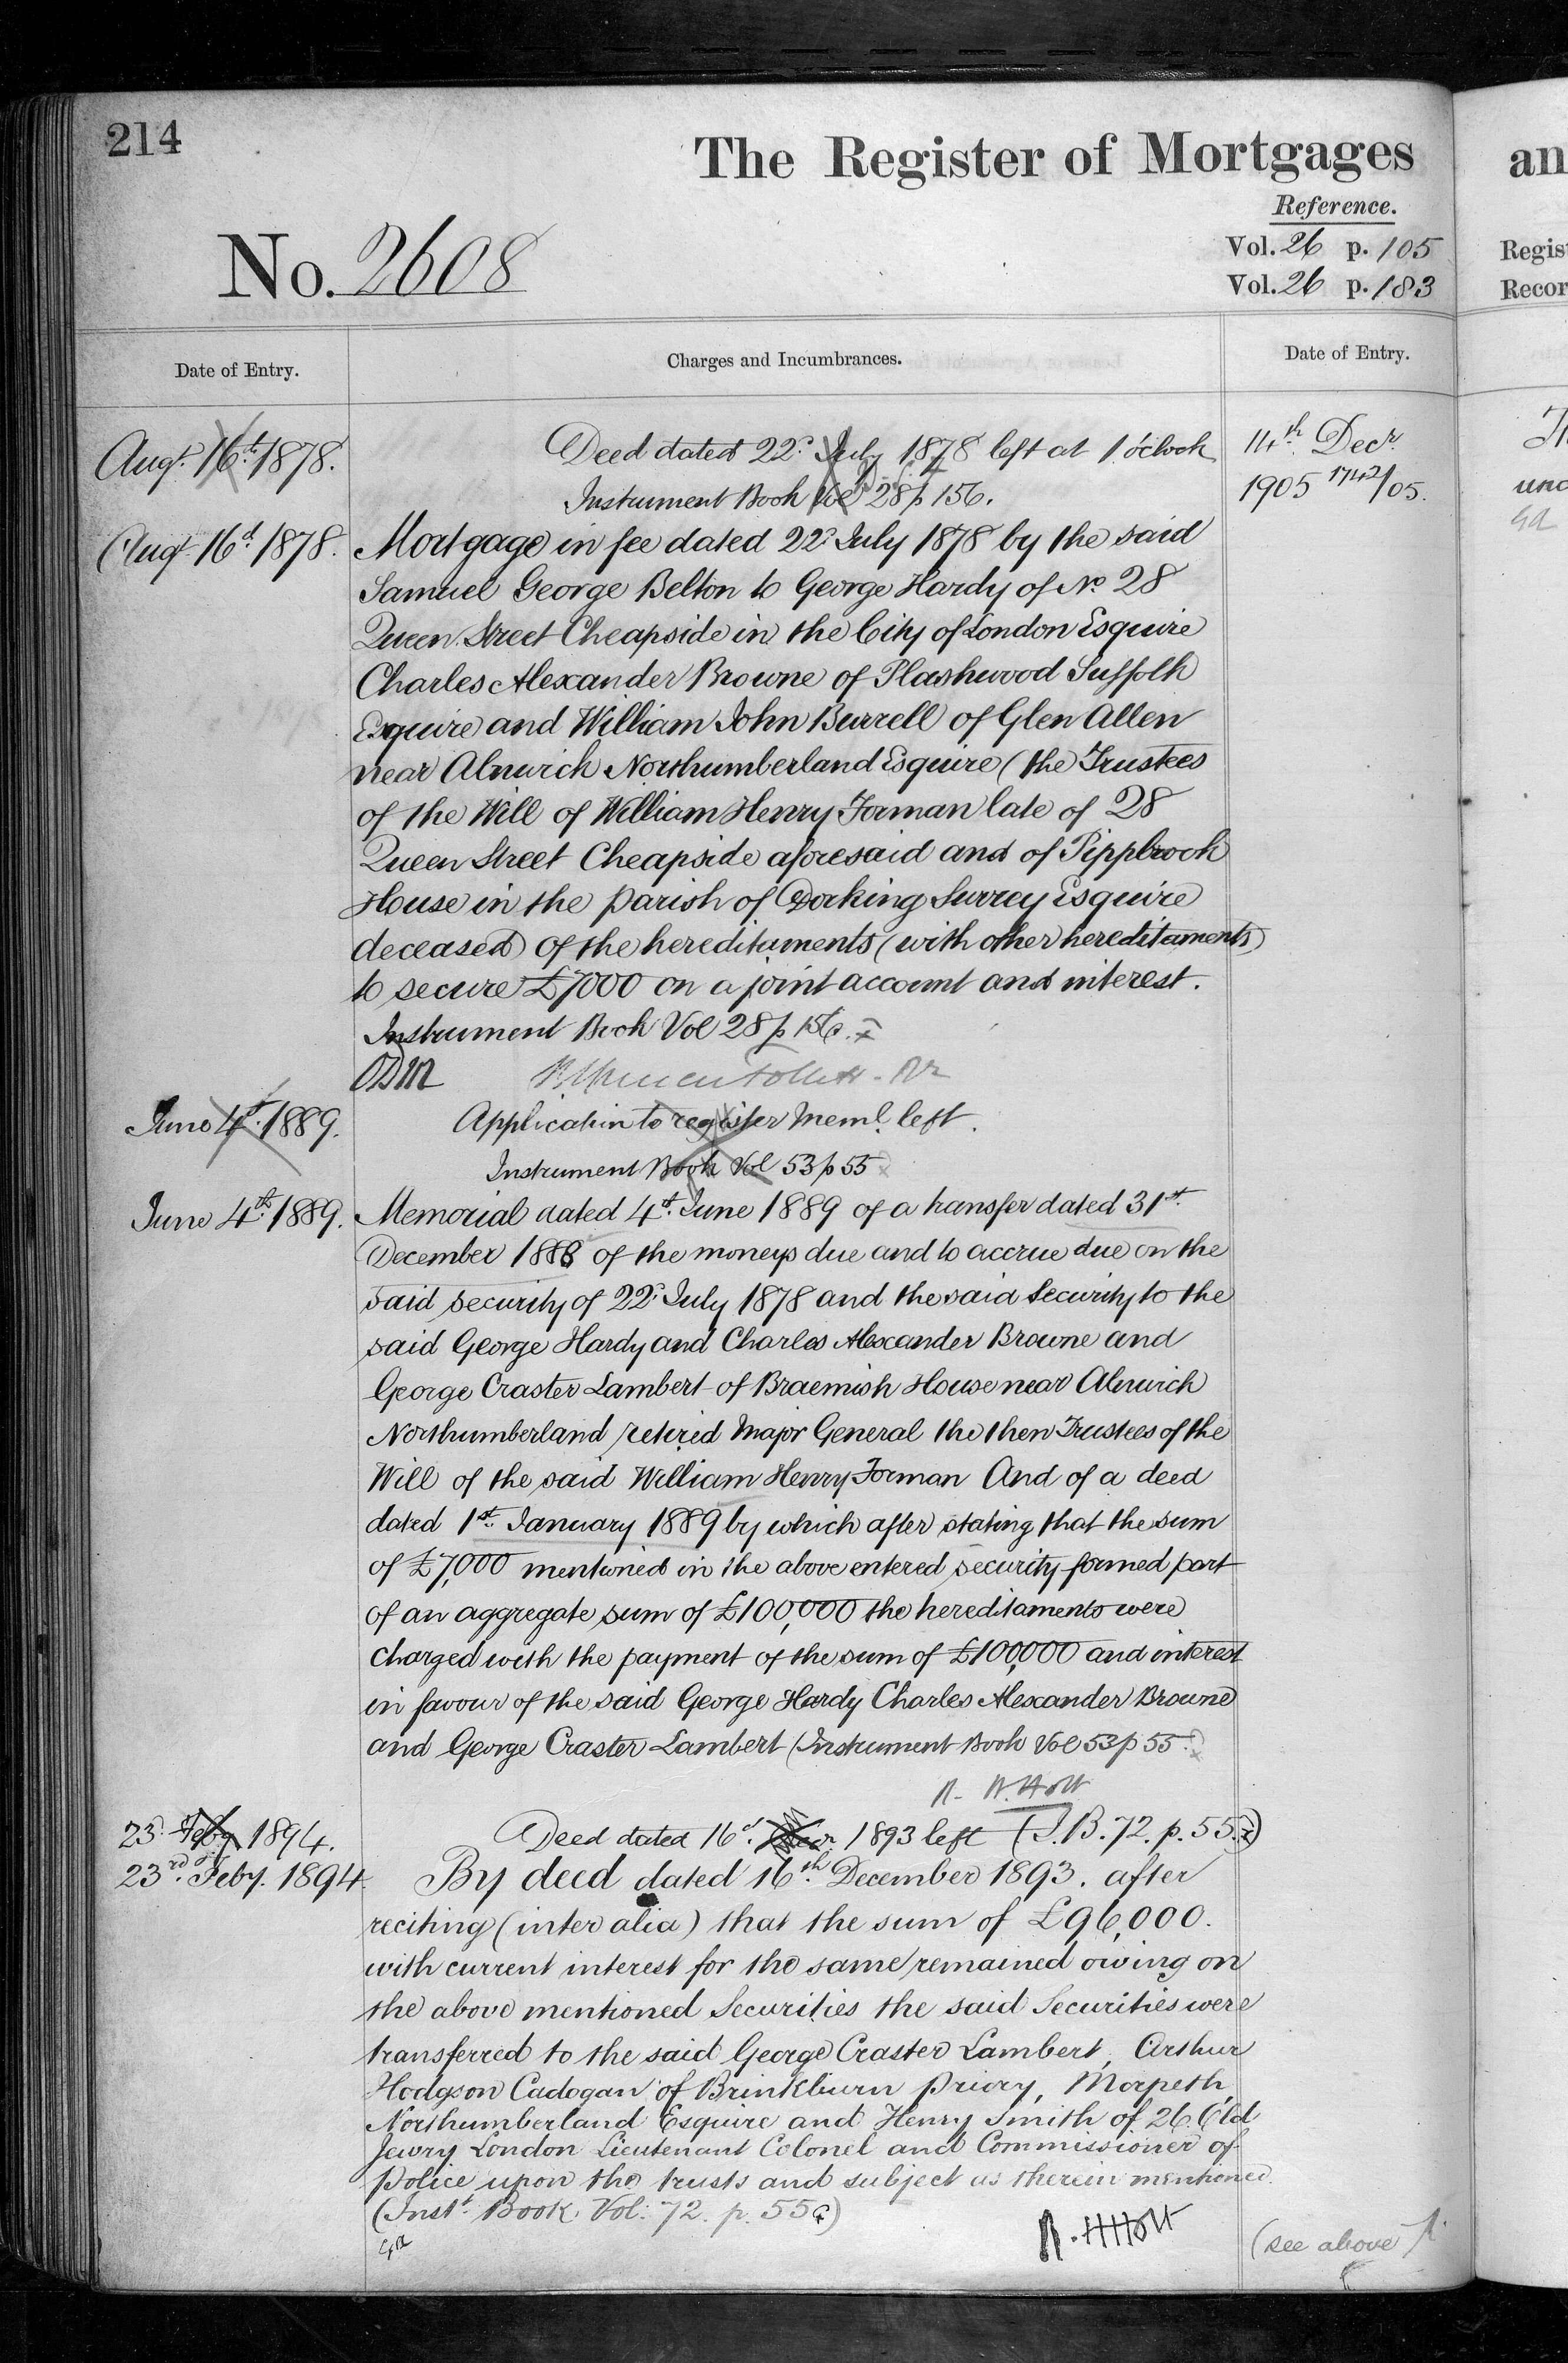 214
The Register of Mortgages
an
Reference.
No. 2608
Vol. 26 p. 105
Vol. 26 p. 183
Regis
Recor
Date of Entry.
Charges and Incumbrances.
Date of Entry.
Augt. 16th 1878.
Deed dated 22d July 1878 left at 1 o'clock
Instrument Book Vol 28 p 156.
14th Decr.
1905 1742/05.
Augt 16th 1878.
Mortgage in fee dated 22d July 1878 by the said
Samuel George Belton to George Hardy of No. 28
Queen Street Cheapside in the City of London Esquire
Charles Alexander Browne of Plashwood Suffolk
Esquire and William John Burrell of Glen Allen
near Alnwick Northumberland Esquire (the Trustees
of the Will of William Henry Forman late of 28
Queen Street Cheapside aforesaid and of Pippbrook
House in the parish of Dorking Surrey Esquire
deceased) of the hereditaments (with other hereditaments)
to secure £7000 on a joint account and interest.
Instrument Book Vol 28 p 156.
June 4th 1889.
Application to register Meml. left.
Instrument Book Vol 53 p 55
June 4th 1889.
Memorial dated 4th June 1889 of a transfer dated 31st
December 1888 of the moneys due and to accrue due on the
said security of 22d July 1878 and the said Security to the
said George Hardy and Charles Alexander Browne and
George Craster Lambert of Braemish House near Alnwick
Northumberland retired Major General the then Trustees of the
Will of the said William Henry Forman And of a deed
dated 1st January 1889 by which after stating that the sum
of £7,000 mentioned in the above entered security formed part
of an aggregate sum of £100,000 the hereditaments were
charged with the payment of the sum of £100,000 and interest
in favour of the said George Hardy Charles Alexander Browne
and George Craster Lambert (Instrument Book Vol 53 p 55)
R. H. Holt
23d Feby 1894.
Deed dated 16th Decr 1893 left (I.B. 72. p. 55)
23rd Feby. 1894
By deed dated 16th December 1893. after
reciting (inter alia) that the sum of £96,000.
with current interest for the same remained owing on
the above mentioned Securities the said Securities were
transferred to the said George Craster Lambert, Arthur
Hodgson Cadogan of Brinkburn Priory, Morpeth,
Northumberland Esquire and Henry Smith of 26 Old
Jewry London Lieutenant Colonel and Commissioner of
Police upon the trusts and subject as therein mentioned.
(Inst. Book. Vol: 72. p. 55)
R. H. Holt
(see above